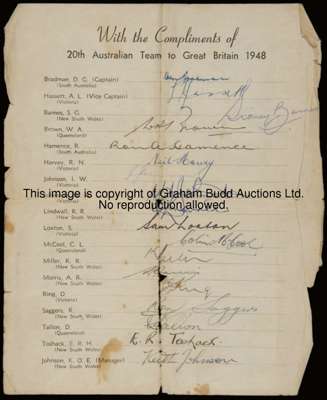 With the Compliments of
20th Australian Team to Great Britain 1948
Bradman, D. G. (Captain)
(South Australia)
Hassett, A. L. (Vice Captain)
(Victoria)
Barnes, S. G.
(New South Wales)
Sidney Barnes
Brown, W. A.
(Queensland)
Hamence, R.
(South Australia)
Ron A Hamence
Harvey, R. N.
(Victoria)
Neil Harvey
Johnson, I. W.
This image is copyright of Graham Budd Auctions Ltd.
No reproduction allowed.
Lindwall, R. R.
(New South Wales)
Loxton, S.
(Victoria)
Sam Loxton
McCool, C. L.
(Queensland)
Colin McCool
Miller, K. R.
(New South Wales)
Morris, A. R.
(New South Wales)
Ring, D
(Victoria)
Ring
Saggers, R.
(New South Wales)
Ron Saggers
Tallon, D.
(Queensland)
Toshack, E. R. H.
(New South Wales)
E. R. Toshack
Johnson, K. O. E. (Manager)
(New South Wales)
Keith Johnson